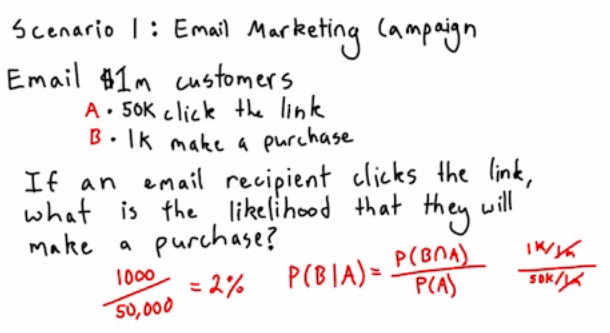 Scenario 1: Email Marketing Campaign
Email $1m customers
A • 50K click the link
B • 1K make a purchase
If an email recipient clicks the link,
what is the likelihood that they will
make a purchase?
1000/50,000 = 2% P(B|A) = P(B∩A)/P(A) 1K/1m / 50K/1m